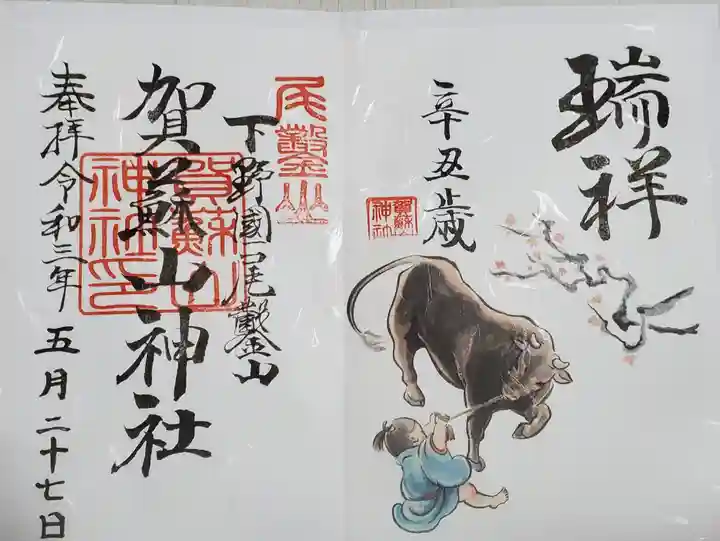 瑞祥
辛丑歳
賀蘇山
神社
尾鑿山
下野國尾鑿山
賀蘇山神社
賀蘇山
神社印
奉拝令和三年五月二十七日